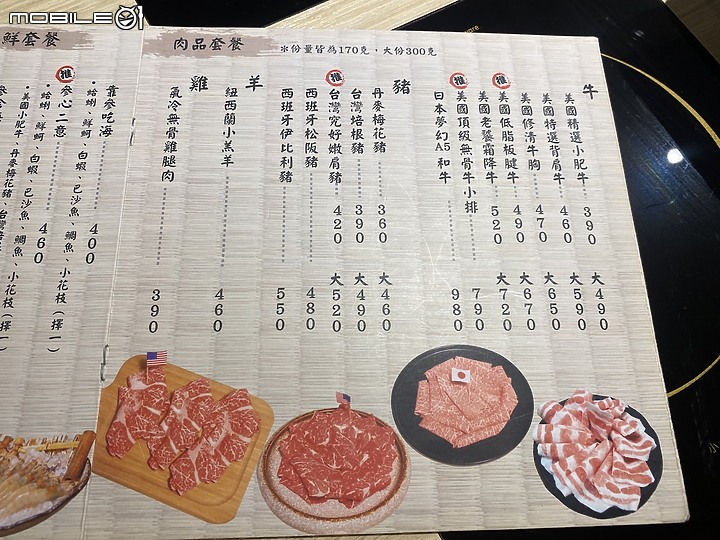 MOBILE01
肉品套餐
※份量皆為170克，大份300克
牛
美國精選小肥牛 390 大490
美國特選背肩牛 460 大590
美國修清牛胸 470 大650
推 美國低脂板腱牛 490 大670
美國老饕霜降牛 520 大720
推 美國頂級無骨牛小排 790
日本夢幻A5和牛 980
豬
丹麥梅花豬 360 大460
台灣培根豬 390 大490
推 台灣究好嫩肩豬 420 大520
西班牙松阪豬 480
西班牙伊比利豬 550
羊
紐西蘭小羔羊 460
雞
氣冷無骨雞腿肉 390
鮮套餐
靠參吃海 400
・蛤蜊、鮮蚵、白蝦、巴沙魚、鯛魚、小花枝(擇一)
推 參心二意 460
・蛤蜊、鮮蚵、白蝦、巴沙魚、鯛魚、小花枝(擇一)
・美國小肥牛、丹麥梅花豬、台灣培